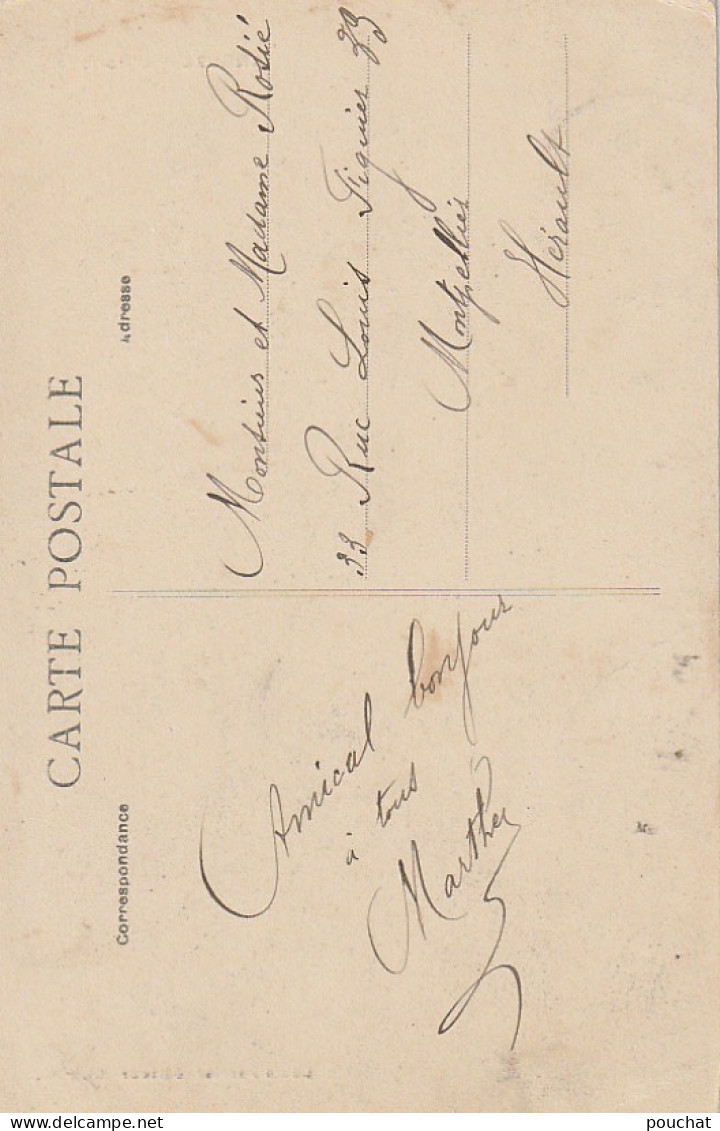 CARTE POSTALE
Correspondance
Adresse
Amical bonjour
à tous
Marthe
Monsieur et Madame Rosié
33 Rue Louis Figuier 33
Montpellier
Hérault
pouchat